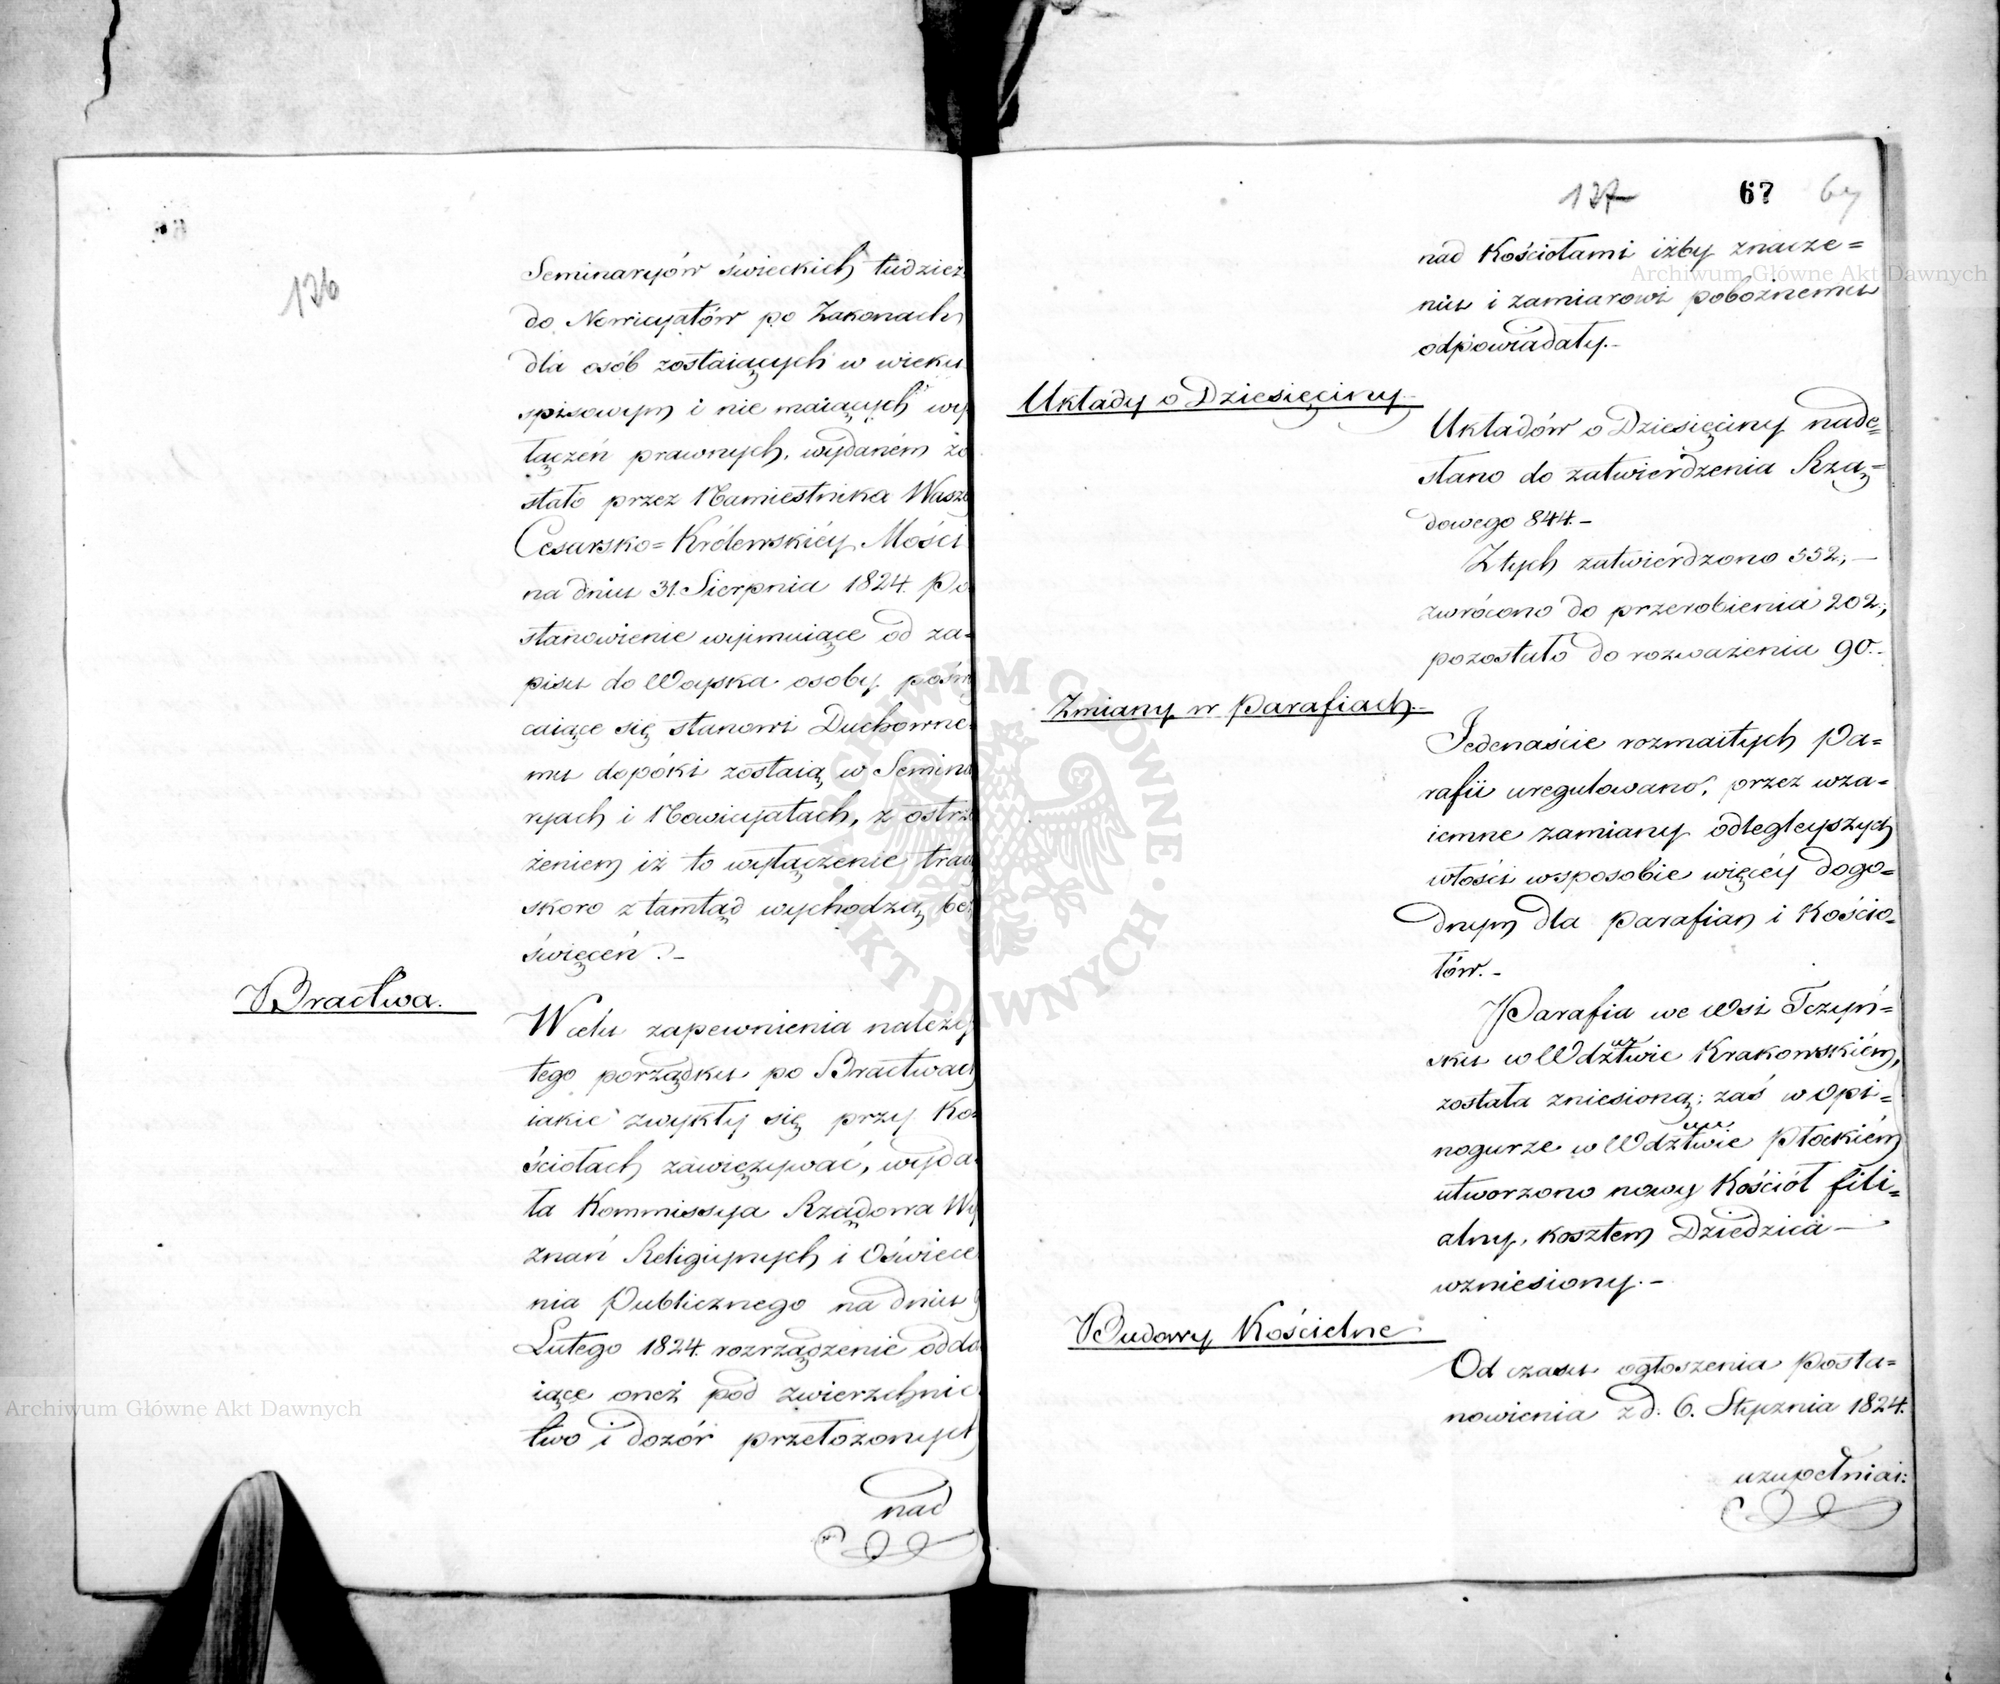 126
Seminaryów świeckich tudzież
do Nowicyatów po Zakonach
dla osób zostaiących w wieku
spisowym i nie maiących wy
łączeń prawnych, wydaném zo
stało przez Namiestnika Waszéy
Cesarsko=Królewskiéy Mości
na dniu 31. Sierpnia 1824. Po
stanowienie wyimuiące od za-
pisu do Woyska osoby poświę
caiące się stanowi Duchowne
mu dopóki zostaią w Semina
ryach i Nowicyatach, z ostrze
żeniem iż to wyłączenie tracą
skoro z tamtąd wychodzą bez
święceń.-
Bractwa.
W celu zapewnienia należy
tego porządku po Bractwach
iakie zwykły się przy Ko
ściołach zawięzywać, wyda-
ła Kommissya Rządowa Wy
znań Religiynych i Oświece
nia Publicznego na dniu
Lutego 1824. rozrządzenie odda
iące oneż pod zwierzchnic
two i dozór przełożonych
nad
127 67 67
nad Kościołami iżby znacze=
niu i zamiarowi pobożnemu
odpowiadały.-
Układy o Dziesięciny.
Układów o Dziesięciny nade=
słano do zatwierdzenia Rzą=
dowego 844.-
Z tych zatwierdzono 552,-
zwrócono do przerobienia 202.,
pozostało do rozważenia 90.-
Zmiany w Parafiach.
Jedenaście rozmaitych Pa=
rafii uregulowano, przez wza=
iemne zamiany odlegleyszych
włości w sposobie więcéy dogo=
dnym dla Parafian i Kościo=
łów.-
Parafia we Wsi Tczyń=
sku w Wdztwie Krakowskiém,
została zniesioną; zaś w Opi=
nogurze w Wdztwie Płockiém
utworzono nowy Kościół fili=
alny, kosztem Dziedzica -
wzniesiony.-
Budowy Kościelne
Od czasu ogłoszenia Posta=
nowienia z d. 6. Stycznia 1824.
uzupełniai:
Archiwum Główne Akt Dawnych
Archiwum Główne Akt Dawnych
ARCHIWUM GŁÓWNE AKT DAWNYCH